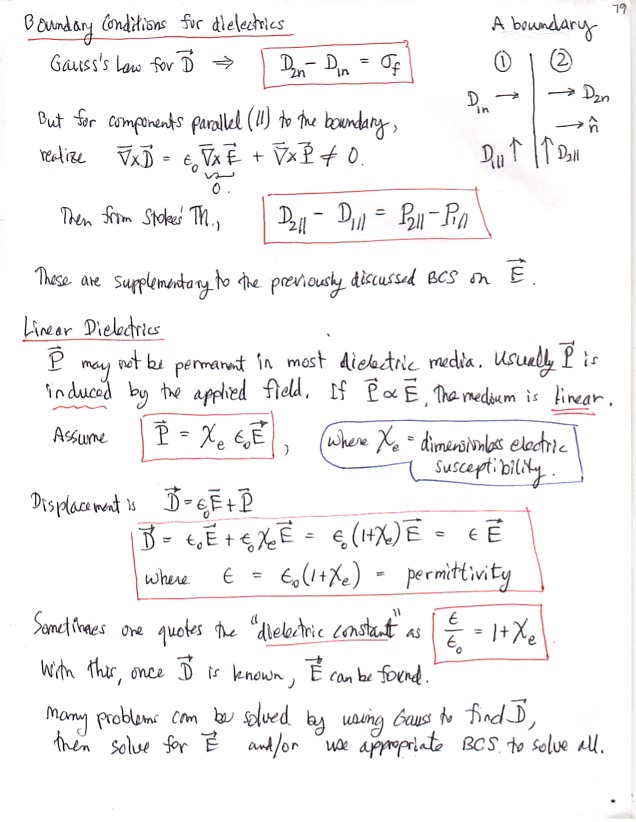 79
Boundary Conditions for dielectrics
A boundary
Gauss's Law for D⃗ ⇒ D₂ₙ - D₁ₙ = σ_f
① ②
D₁ₙ → → D₂ₙ
→ n̂
D₁∥ ↑ ↑ D₂∥
But for components parallel (∥) to the boundary,
realize ∇⃗×D⃗ = ε₀ ∇⃗×E⃗ + ∇⃗×P⃗ ≠ 0.
0.
Then from Stokes' Th., D₂∥ - D₁∥ = P₂∥ - P₁∥
These are supplementary to the previously discussed BCS on E⃗.
Linear Dielectrics
P⃗ may not be permanent in most dielectric media. Usually P⃗ is
induced by the applied field. If P⃗ ∝ E⃗, The medium is linear.
Assume P⃗ = χₑ ε₀E⃗, where χₑ = dimensionless electric
susceptibility.
Displacement is D⃗ = ε₀E⃗ + P⃗
D⃗ = ε₀E⃗ + ε₀χₑE⃗ = ε₀(1+χₑ)E⃗ = ε E⃗
where ε = ε₀(1+χₑ) = permittivity
Sometimes one quotes the "dielectric constant" as ε/ε₀ = 1+χₑ.
With this, once D⃗ is known, E⃗ can be found.
Many problems can be solved by using Gauss to find D⃗,
then solve for E⃗ and/or use appropriate BCS. to solve all.